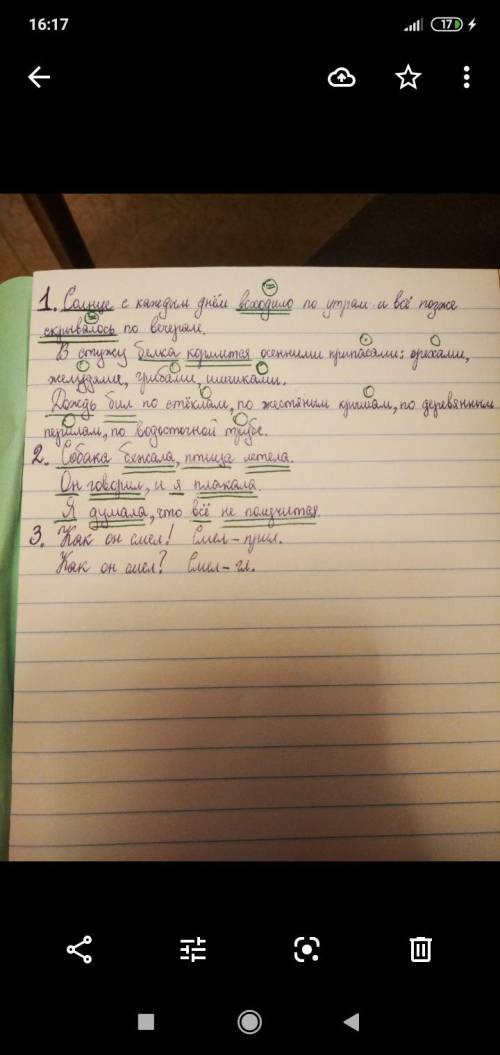 16:17
17
1. Солнце с каждым днём всходило по утрам и всё позже
скрывалось по вечерам.
В стужу белка кормится осенними припасами: орехами,
желудями, грибами, шишками.
Дождь бил по стёклам, по жестяным крышам, по деревянным
перилам, по водосточной трубе.
2. Собака бежала, птица летела.
Он говорил, и я плакала.
Я думала, что всё не получится.
3. Как он смел! Смел - прил.
Как он смел? Смел - гл.